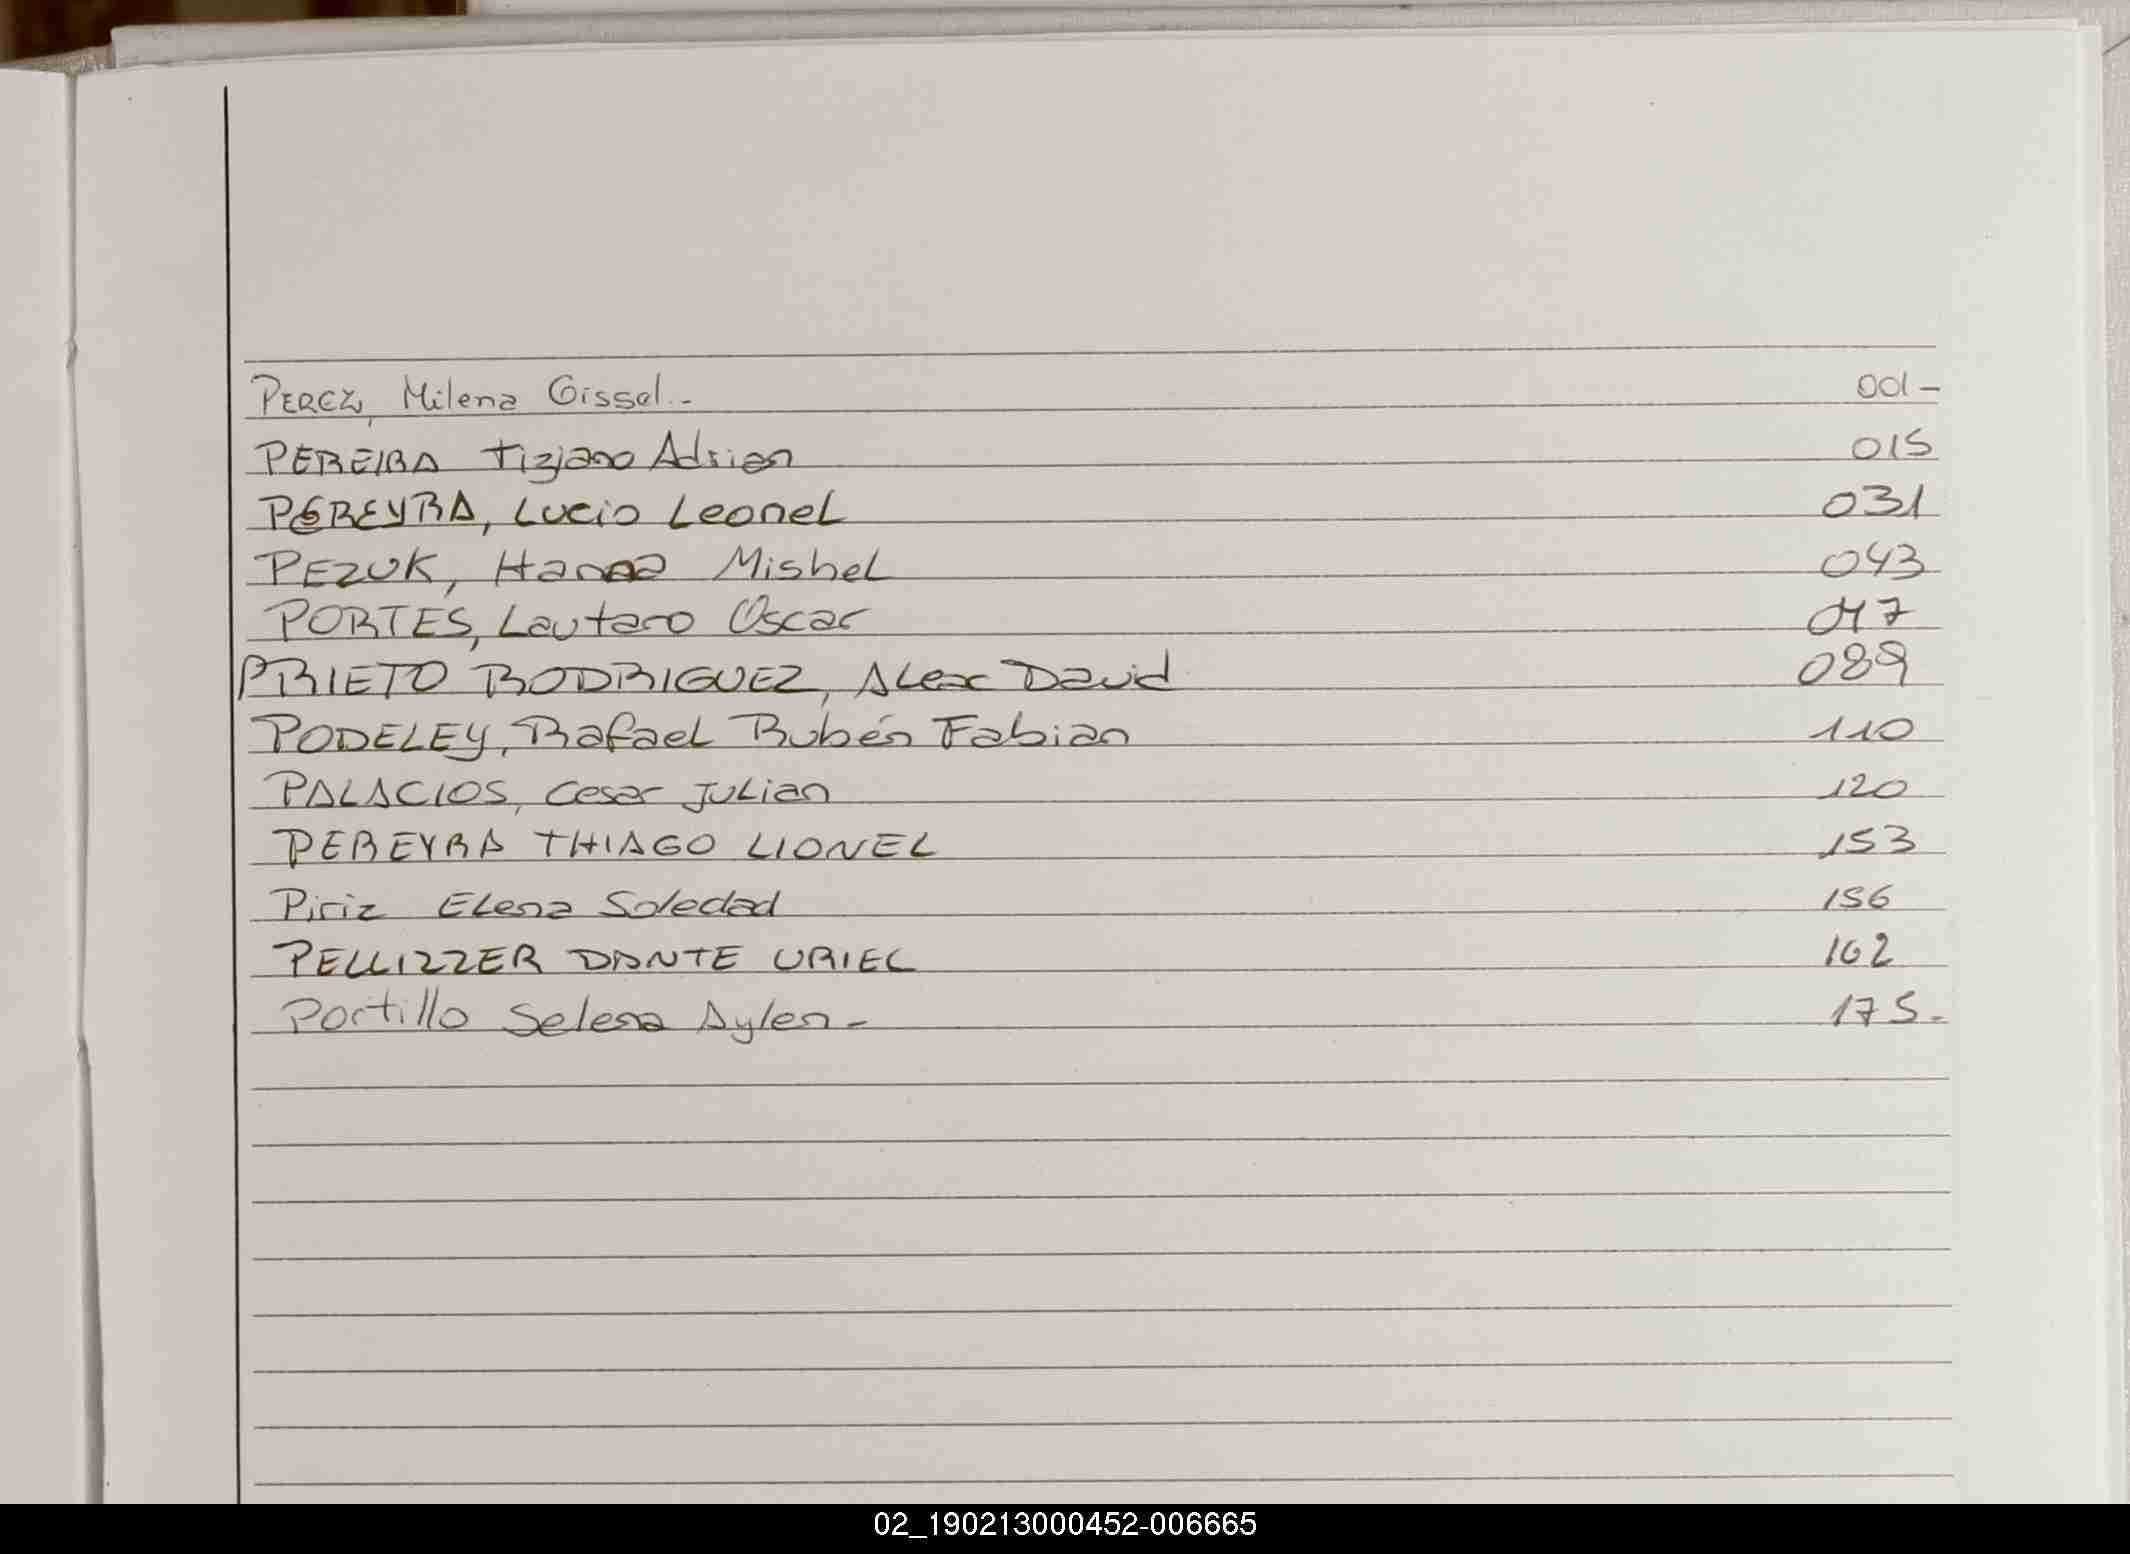 PEREZ, Milena Gissel.- 001-
PEREIRA Tiziano Adrian 015
PEREYRA, Lucio Leonel 031
PEZUK, Hanna Mishel 043
PORTES, Lautaro Oscar 047
PRIETO RODRIGUEZ, Alex David 089
PODELEY, Rafael Rubén Fabian 110
PALACIOS, Cesar Julian 120
PEREYRA THIAGO LIONEL 153
Piriz Elena Soledad 156
PELLIZZER DANTE URIEL 162
Portillo Selena Aylen- 175.
02_190213000452-006665